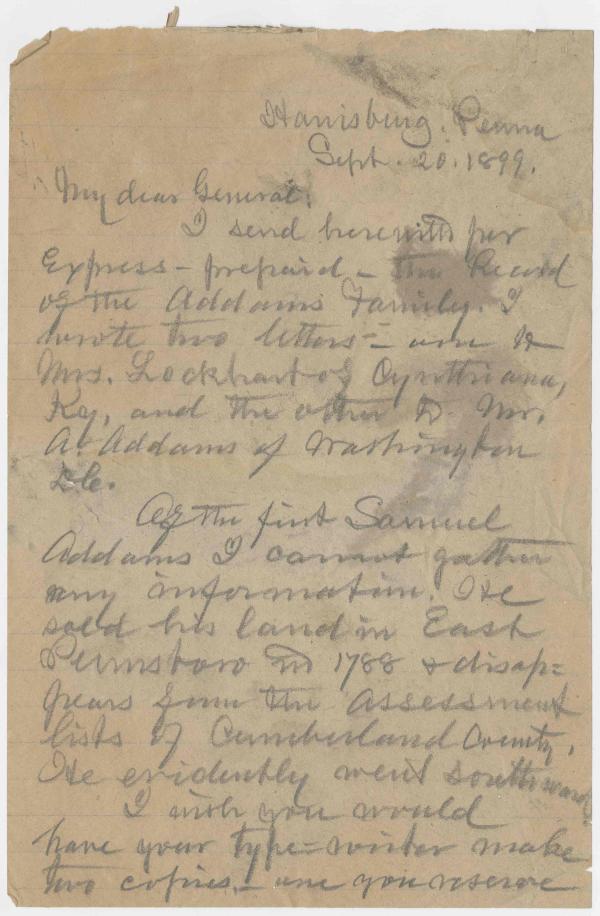 Harrisburg. Penna
Sept. 20. 1899.
My dear General:
I send herewith per
Express - prepaid - the Record
of the Addams Family. I
wrote two letters - one to
Mrs. Lockhart of Cynthiana,
Ky, and the other to Mr.
A. Addams of Washington
D.C.
Of the first Samuel
Addams I cannot gather
any information. He
sold his land in East
Pennsboro in 1788 & disap=
pears from the assessment
lists of Cumberland County.
He evidently went southward.
I wish you would
have your type=writer make
two copies. - one you reserve